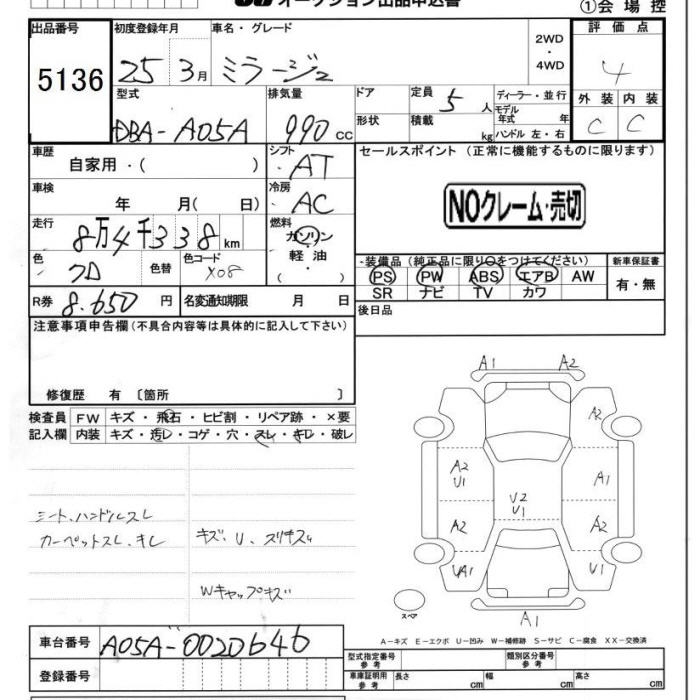 オークション出品申込書
①会場控
出品番号 初度登録年月 車名・グレード 評価点
5136 25 3月 ミラージュ 2WD・4WD 4
型式 排気量 ドア 定員 5人 ディーラー・並行 外装 内装
DBA-A05A 990cc 形状 積載 kg モデル年式 年 ハンドル 左・右 C C
車歴 シフト セールスポイント (正常に機能するものに限ります)
自家用・( ) AT
車検 冷房
年 月( 日) AC NOクレーム・売切
走行 燃料
8万4千338km ガソリン
軽油
・( )
色 色替 色コード ・装備品(純正品に限り○をつけてください) 新車保証書
クロ X08 PS PW ABS エアB AW 有・無
SR ナビ TV カワ
R券 8.650円 名変通知期限 月 日 後日品
注意事項申告欄(不具合内容等は具体的に記入して下さい)
修復歴 有 〔箇所 〕
検査員 FW キズ・飛石・ヒビ割・リペア跡・×要
記入欄 内装 キズ・汚レ・コゲ・穴・スレ・キレ・破レ
シート、ハンドルスレ
カーペットスレ、キレ
キズ、U、スリキズ
Wキャップキズ
A1 A2
A2
A2 U1 A1
U2 U1
A2 A2
UA1 U1
スペア A1
A-キズ E-エクボ U-凹み W-補修跡 S-サビ C-腐食 XX-交換済
車台番号 A05A-0020646
登録番号
型式指定番号 参考 類別区分番号 参考
車庫証明用 参考 長さ cm 幅 cm 高さ cm